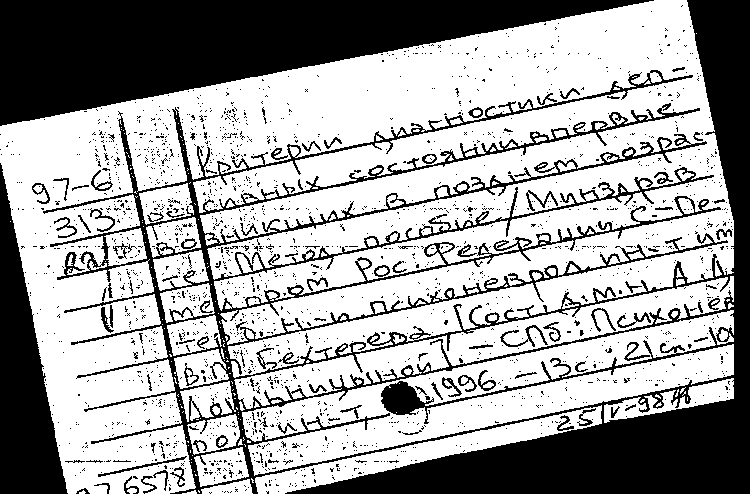 97-6
313
Критерии диагностики деп-
рессивных состояний, впервые
возникших в позднем возрас-
те: Метод. пособие / Минздрав
медпром Рос. Федерации, С.-Пе-
терб. н.-и. психоневрол. ин-т им
В.М. Бехтерева. [Сост. д.м.н. А.Д.
]. - СПб.: Психонев
рол. ин-т, 1996. - 13с.; 21 см. - 100
25/V-98
97 6578